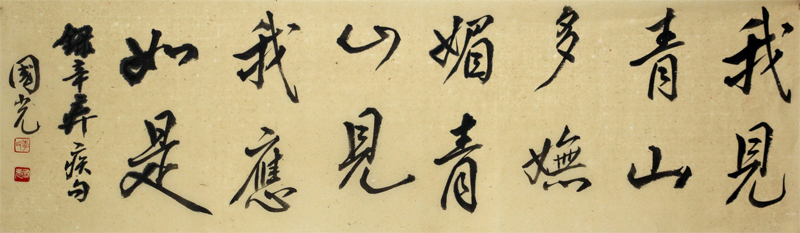 我見
青山
多嫵
媚青
山見
我應
如是
錄辛弃疾句
國光